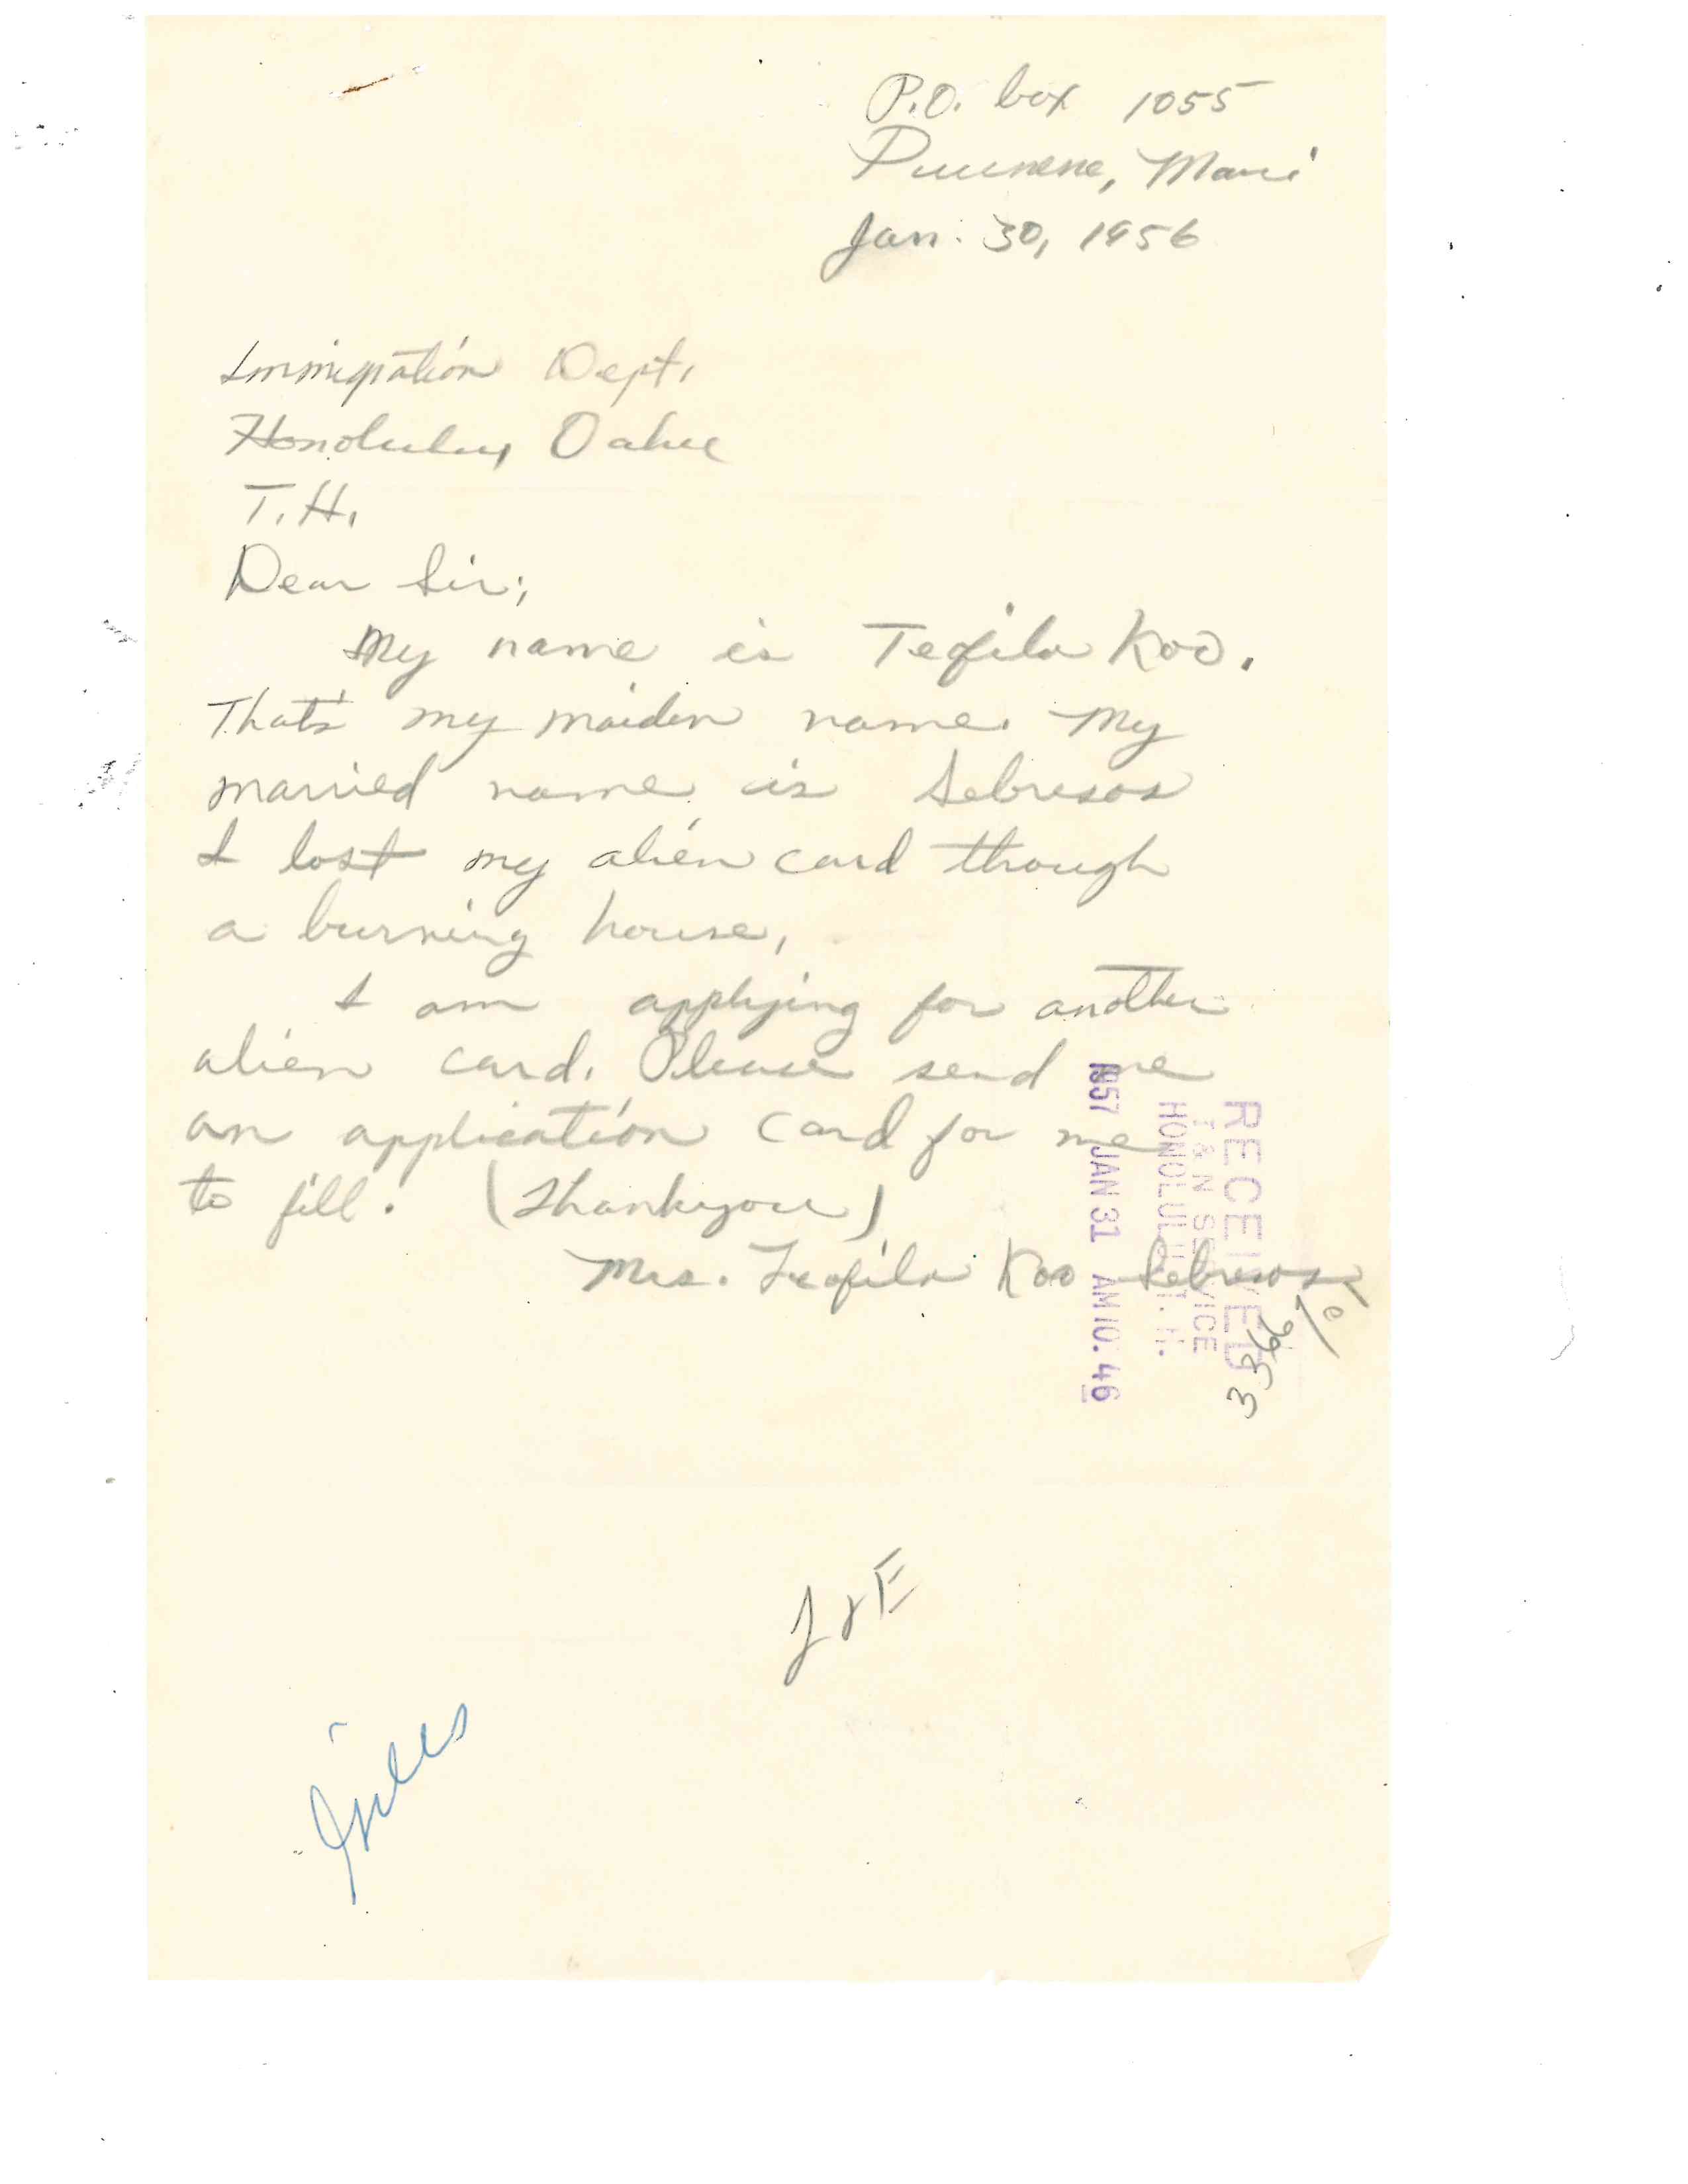 P.O. box 1055
Puunene, Maui
Jan. 30, 1956
Immigration Dept.
Honolulu, Oahu
T.H.
Dear Sir;
My name is Teofila Koo.
That's my maiden name. My
married name is Sebresos
I lost my alien card though
a burning house.
I am applying for another
alien card. Please send me
an application card for me
to fill. (Thankyou)
Mrs. Teofila Koo Sebresos
RECEIVED
I & N SERVICE
HONOLULU, T. H.
1957 JAN 31 AM 10. 46
3366